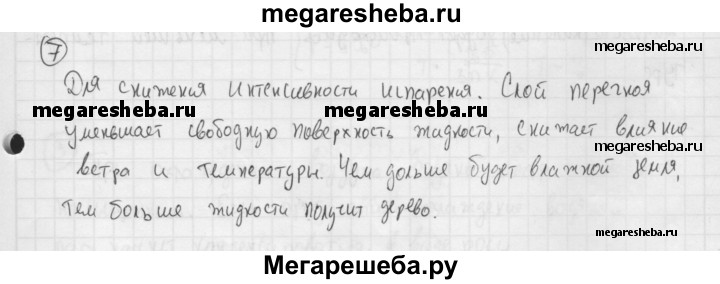 megaresheba.ru
7
Для снижения интенсивности испарения. Слой перегноя
megaresheba.ru
megaresheba.ru
megaresheba.ru
уменьшает свободную поверхность жидкости, снижает влияние
megaresheba.ru
ветра и температуры. Чем дольше будет влажной земля,
тем больше жидкости получит дерево.
megaresheba.ru
Мегарешеба.ру